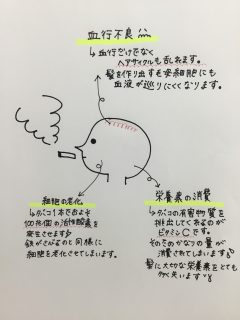 血行不良
↳ 血行だけでなく
ヘアサイクルも乱れます。
髪を作り出す毛母細胞にも
血液が巡りにくくなります。
細胞の老化
↳ タバコ1本でおよそ
100兆個の活性酸素を
発生させます
鉄がさびるのと同様に
細胞を老化させてしまいます。
栄養素の消費
↳ タバコの有害物質を
排出してくれるのが
ビタミンCです。
そのためかなりの量が
消費されてしまいます
髪に大切な栄養素をとても
失います